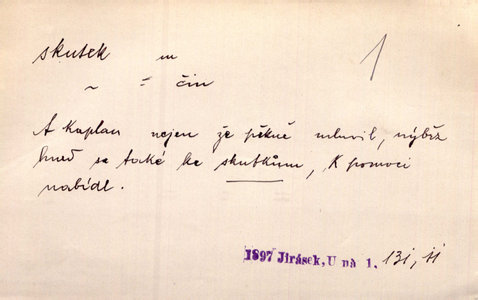 skutek m 1
~ = čin
A kaplan nejen že pěkně mluvil, nýbrž
hned se také ke skutkům, k pomoci
nabídl.
1897 Jirásek, U nás 1. 131, 11